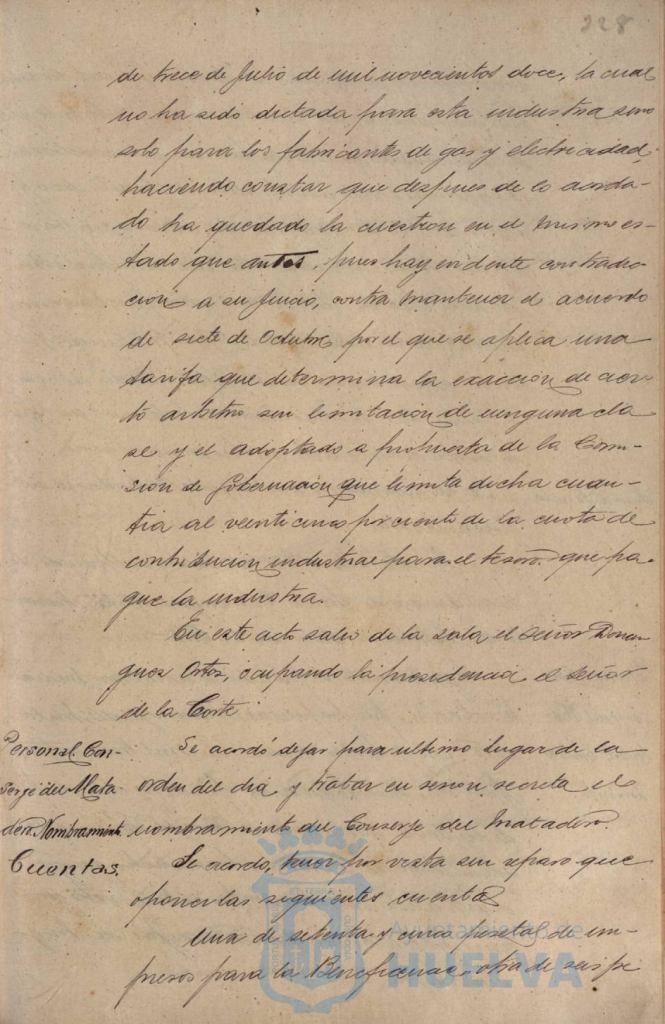 228
de trece de Julio de mil novecientos doce, la cual
no ha sido dictada para esta industria sino
solo para los fabricantes de gas y electricidad,
haciendo constar que despues de lo acorda-
do ha quedado la cuestion en el mismo es-
tado que antes, pues hay evidente contradic-
cion, a su juicio, contra mantener el acuerdo
de siete de Octubre, por el que se aplica una
tarifa que determina la exacción de cier-
to arbitrio sin limitación de ninguna cla
se y el adoptado a propuesta de la Comi-
sión de Gobernación que limita dicha cuan-
tia al veinticinco por ciento de la cuota de
contribución industrial para el tesoro que pa-
gue la industria.
En este acto salió de la sala el Señor Domin-
guez Ortes, ocupando la presidencia el Señor
de la Corte
Personal. Con-
serje del Mata-
dero. Nombramiento
Se acordó dejar para ultimo lugar de la
orden del dia y tratar en sesion secreta el
nombramiento del Conserje del Matadero.
Cuentas.
Se acordo, tener por vista sin reparo que
oponer las siguientes cuentas
Una de setenta y cinco pesetas de im-
presos para la Beneficencia, otra de seis pe
Ayuntamiento de
HUELVA